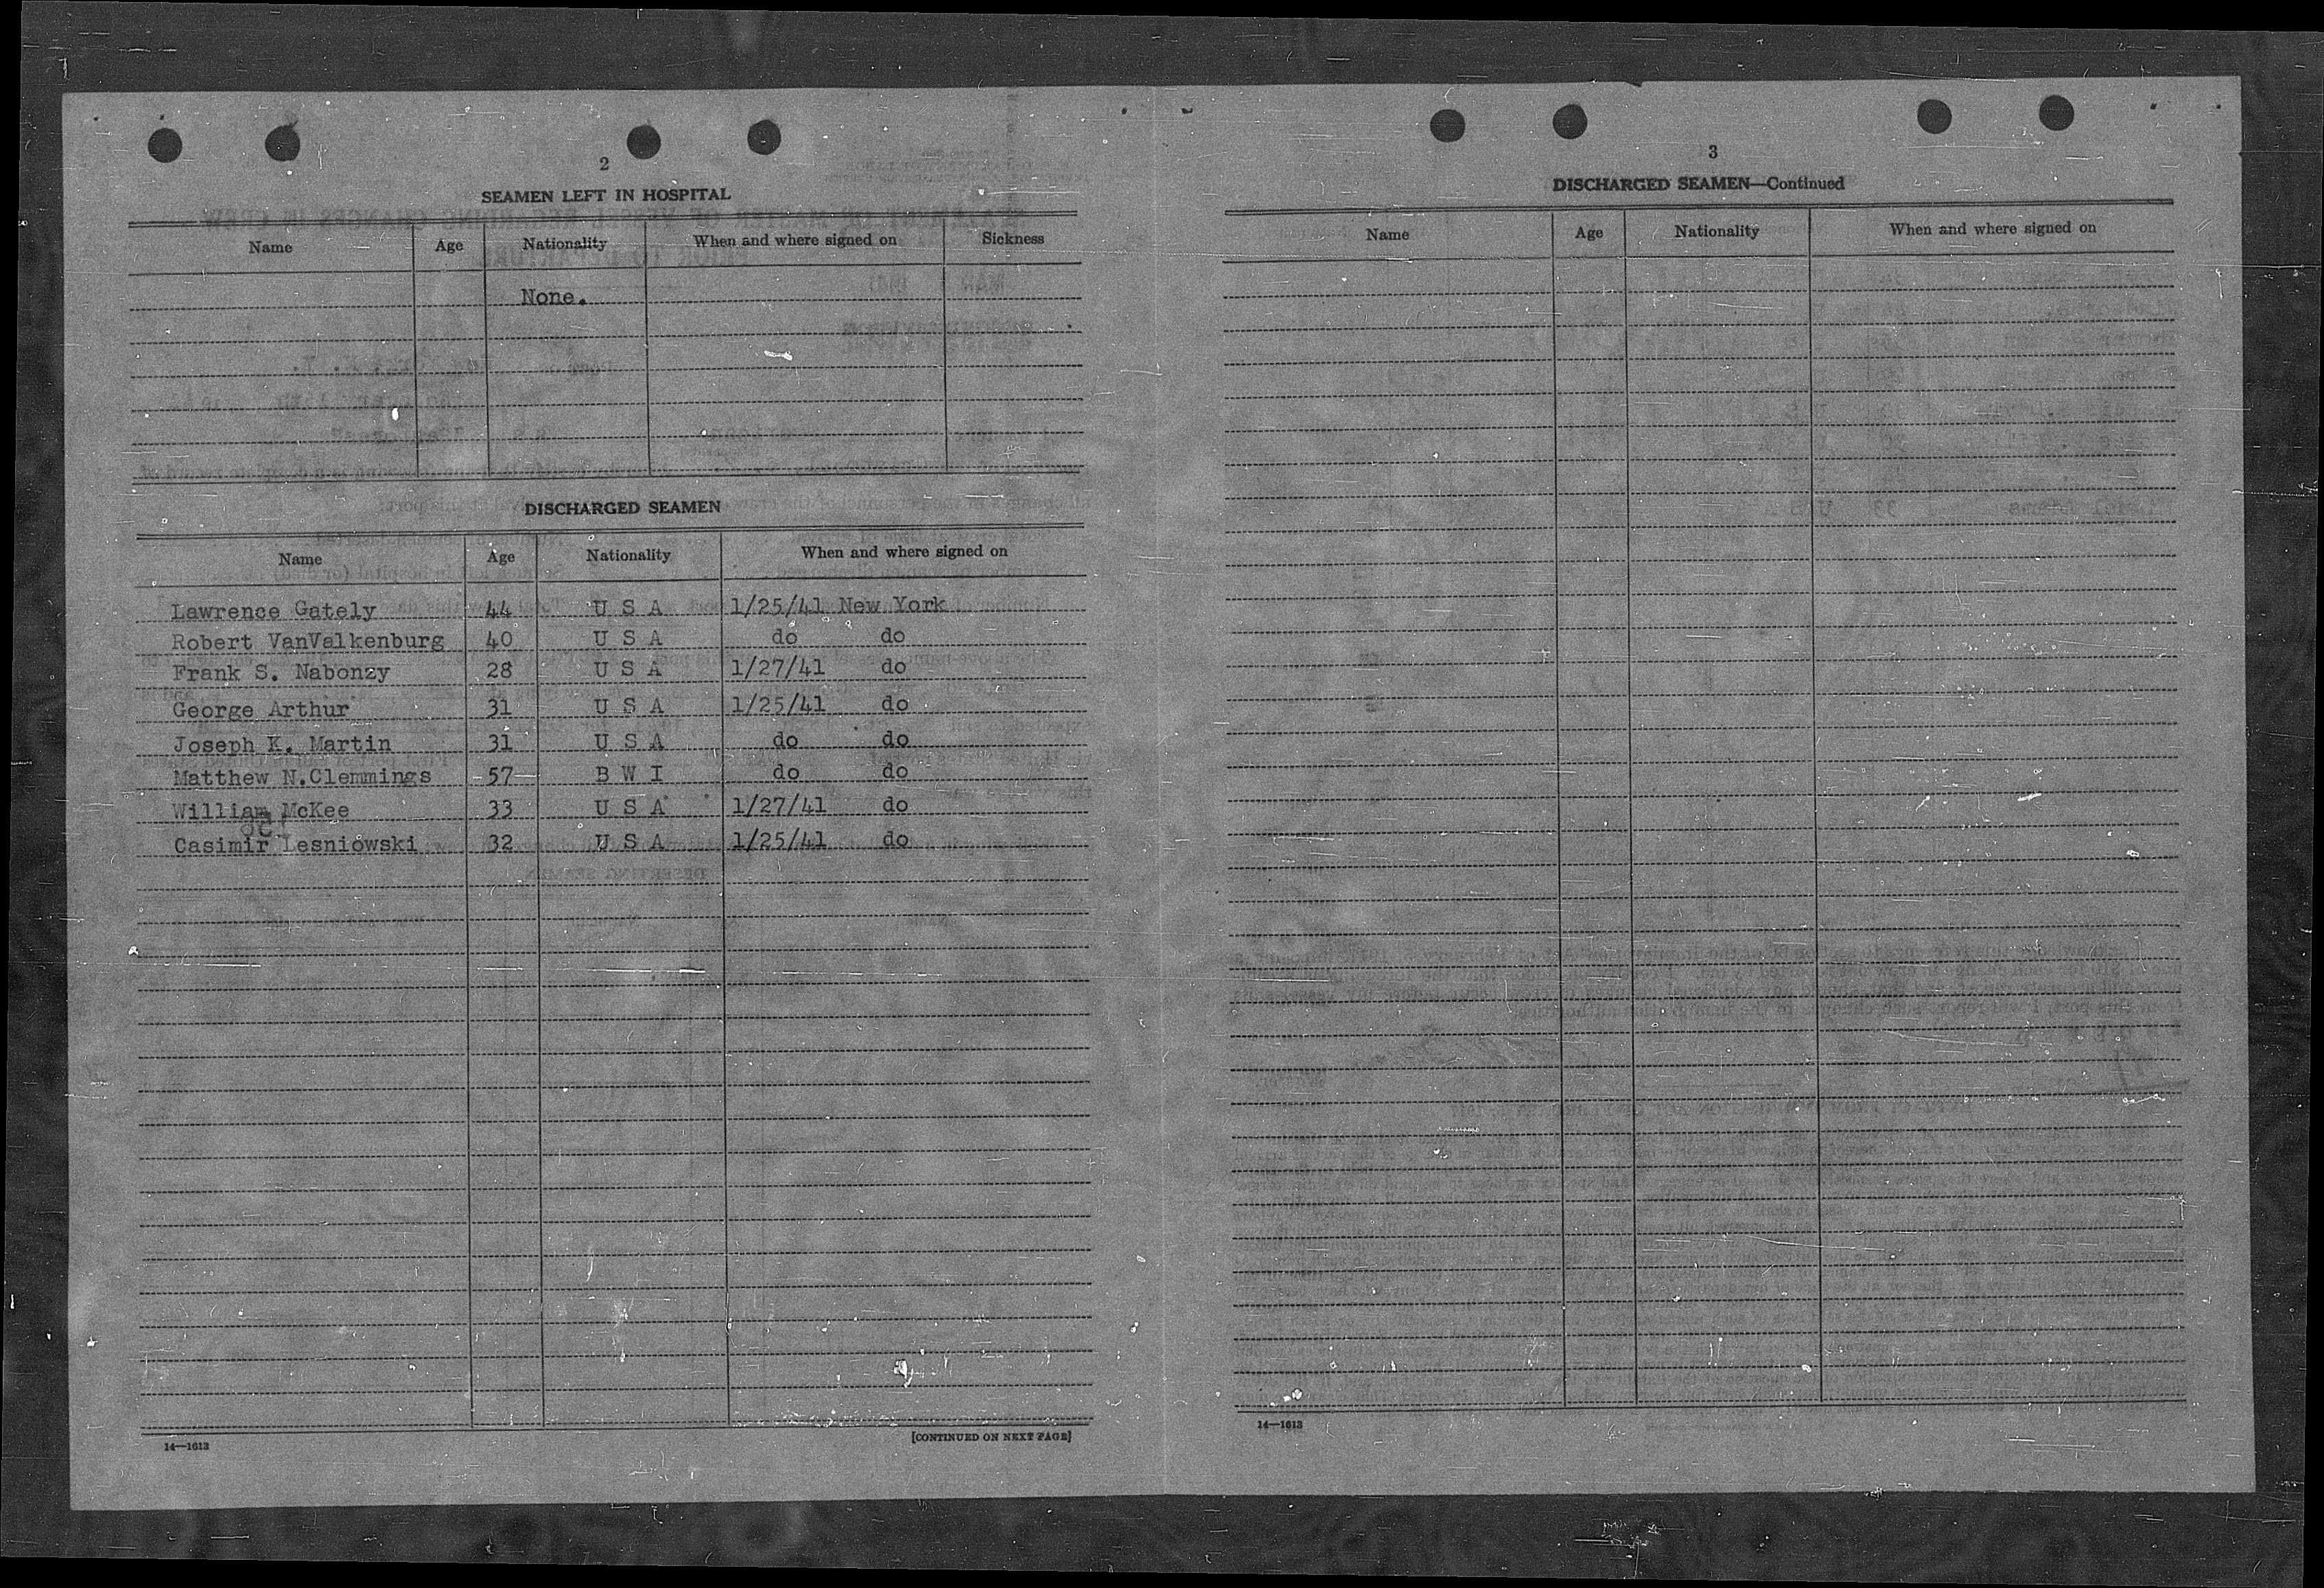 2
SEAMEN LEFT IN HOSPITAL
Name Age Nationality When and where signed on Sickness
None.
DISCHARGED SEAMEN
Name Age Nationality When and where signed on
Lawrence Gately 44 U S A 1/25/41 New York
Robert VanValkenburg 40 U S A do do
Frank S. Nabonzy 28 U S A 1/27/41 do
George Arthur 31 U S A 1/25/41 do
Joseph K. Martin 31 U S A do do
Matthew N.Clemmings 57 B W I do do
William McKee 33 U S A 1/27/41 do
Casimir Lesniowski 32 U S A 1/25/41 do
14—1613
[CONTINUED ON NEXT PAGE]
3
DISCHARGED SEAMEN—Continued
Name Age Nationality When and where signed on
14—1613